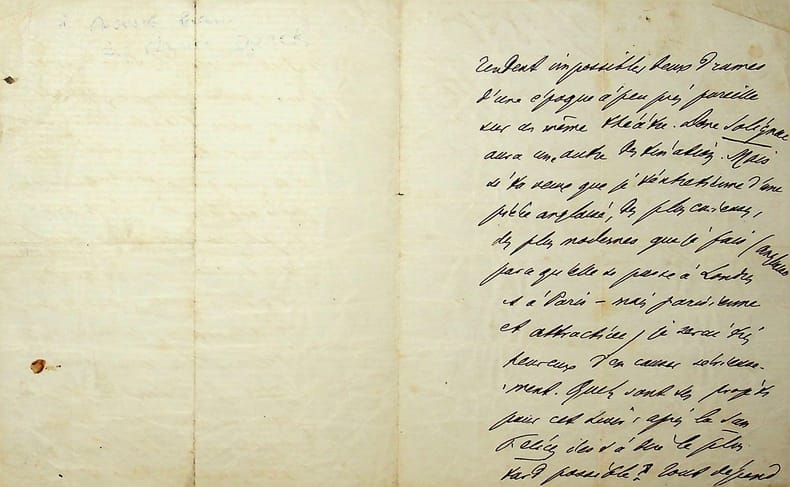 rendent impossibles deux drames
d'une époque à peu près pareille
sur ce même théâtre. Donc Solignac
aura une autre destination. Mais
si tu veux que je t'entretienne d'une
pièce anglaise, des plus curieuses,
des plus modernes que je fais (anglaise
parce qu'elle se passe à Londres
et à Paris – mais parisienne
et attractive) je serai très
heureux d'en causer sérieuse-
ment. Quels sont tes projets
pour cet hiver, après la San
Felice, c'est à dire le plus
tard possible? Tout dépend